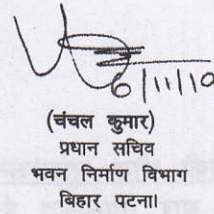 6/11/10
(चंचल कुमार)
प्रधान सचिव
भवन निर्माण विभाग
बिहार पटना।